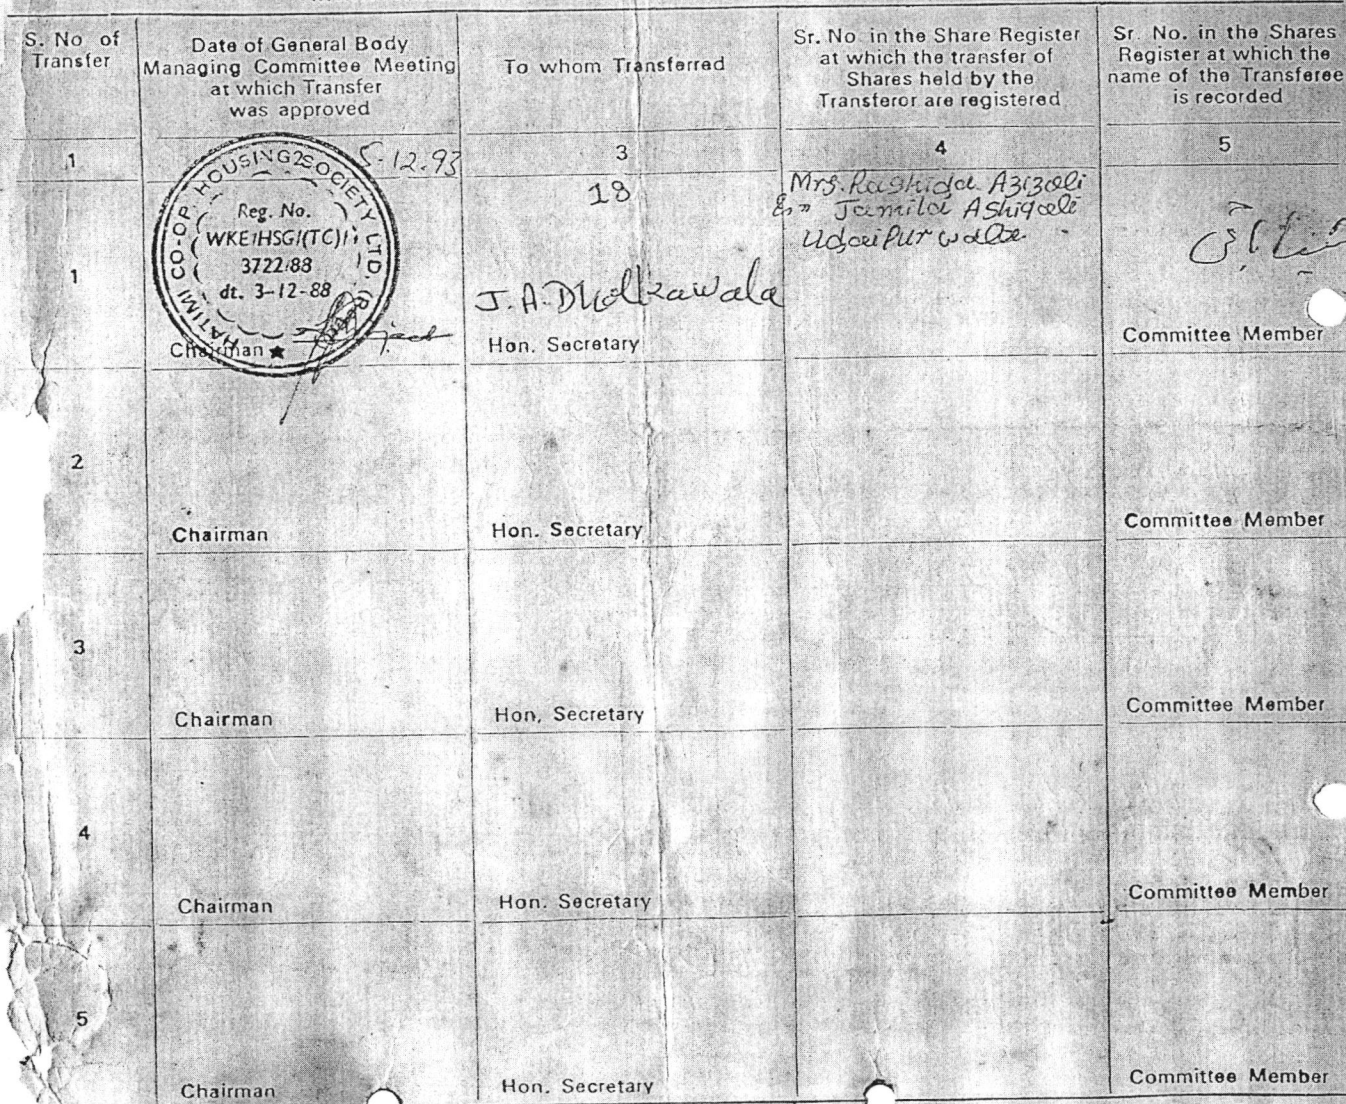 S. No. of
Transfer
Date of General Body
Managing Committee Meeting
at which Transfer
was approved
To whom Transferred
Sr. No. in the Share Register
at which the transfer of
Shares held by the
Transferor are registered
Sr. No. in the Shares
Register at which the
name of the Transferee
is recorded
1
2
3
4
5
5-12-93
18
Mrs. Rashida Azizali
& " Jamila Ashiqali
Udaipurwala
FATIMI CO-OP. HOUSING SOCIETY LTD.
Reg. No.
WKE/HSG/(TC)/
3722/88
dt. 3-12-88
1
J. A. Dholkawala
Chairman
Hon. Secretary
Committee Member
2
Chairman
Hon. Secretary
Committee Member
3
Chairman
Hon. Secretary
Committee Member
4
Chairman
Hon. Secretary
Committee Member
5
Chairman
Hon. Secretary
Committee Member